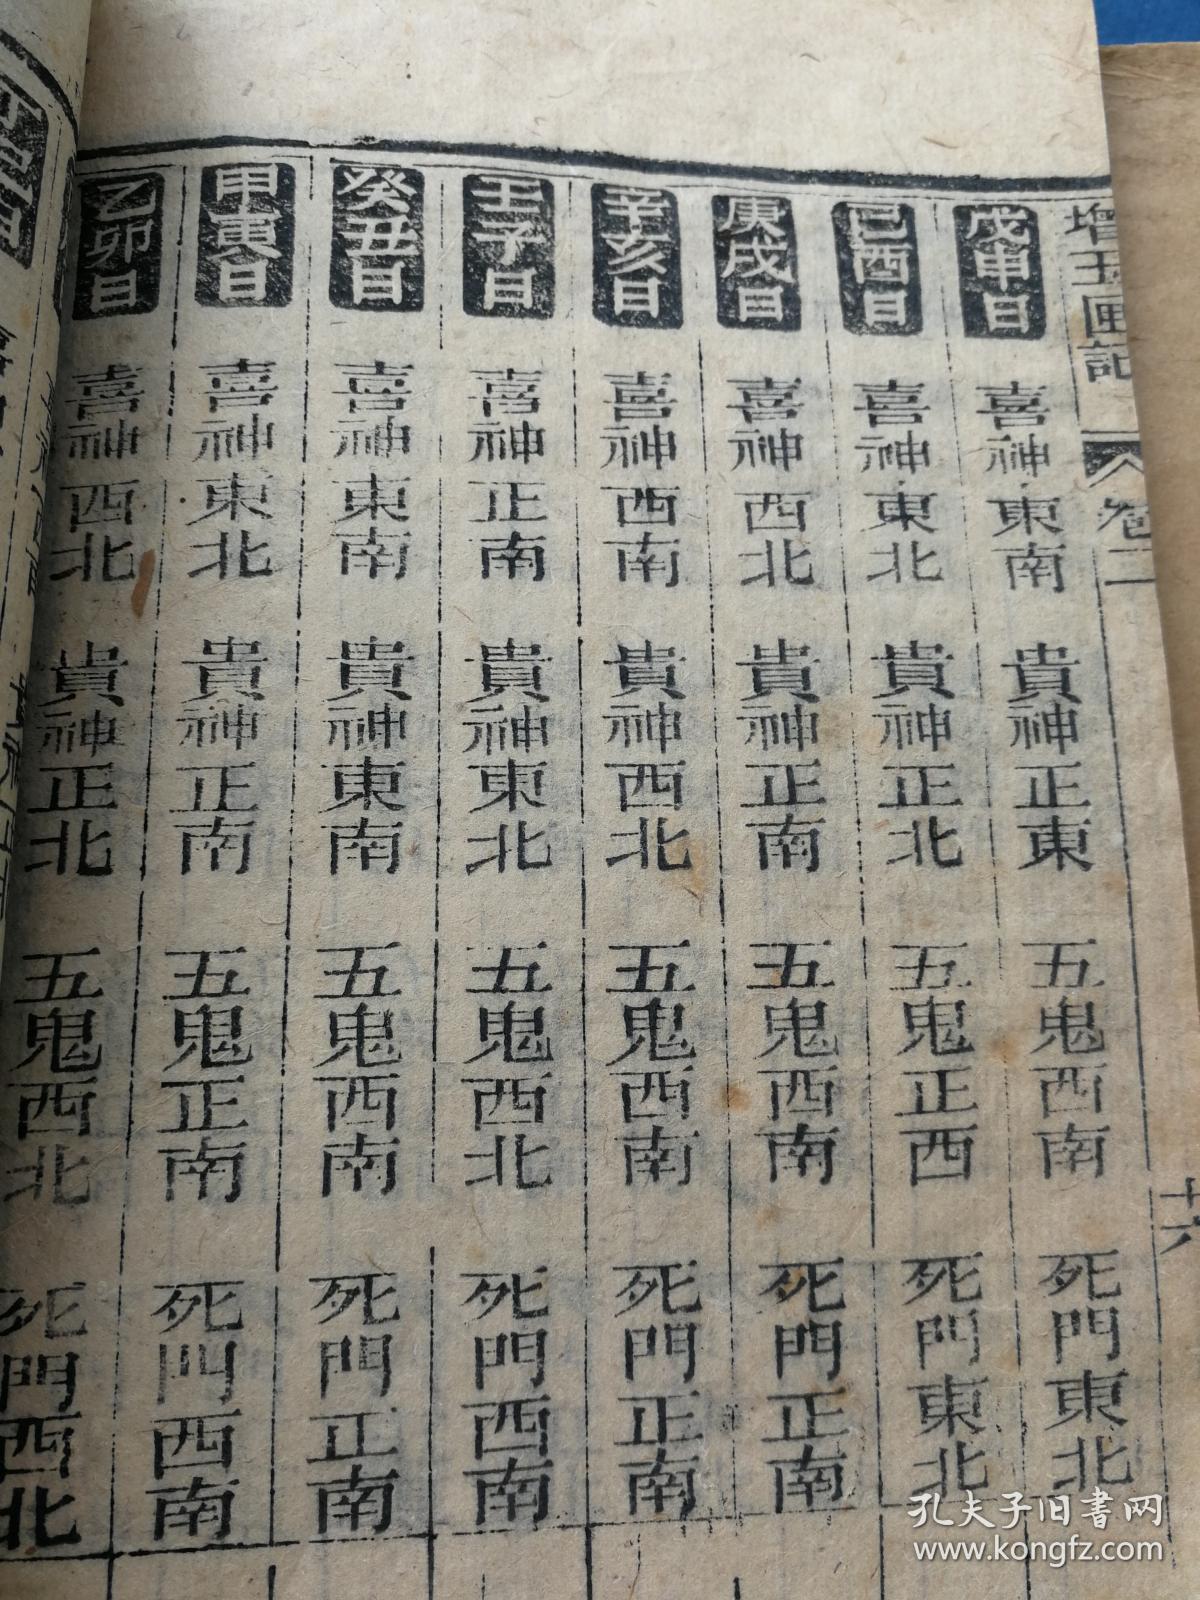 增玉匣記 卷二 十六
戊申日 喜神東南 貴神正東 五鬼西南 死門東北
己酉日 喜神東北 貴神正北 五鬼正西 死門東北
庚戌日 喜神西北 貴神正南 五鬼西南 死門正南
辛亥日 喜神西南 貴神西北 五鬼西南 死門正南
壬子日 喜神正南 貴神東北 五鬼西北 死門西南
癸丑日 喜神東南 貴神東南 五鬼西南 死門正南
甲寅日 喜神東北 貴神正南 五鬼正南 死門西南
乙卯日 喜神西北 貴神正北 五鬼西北 死門西北
孔夫子旧书网
www.kongfz.com